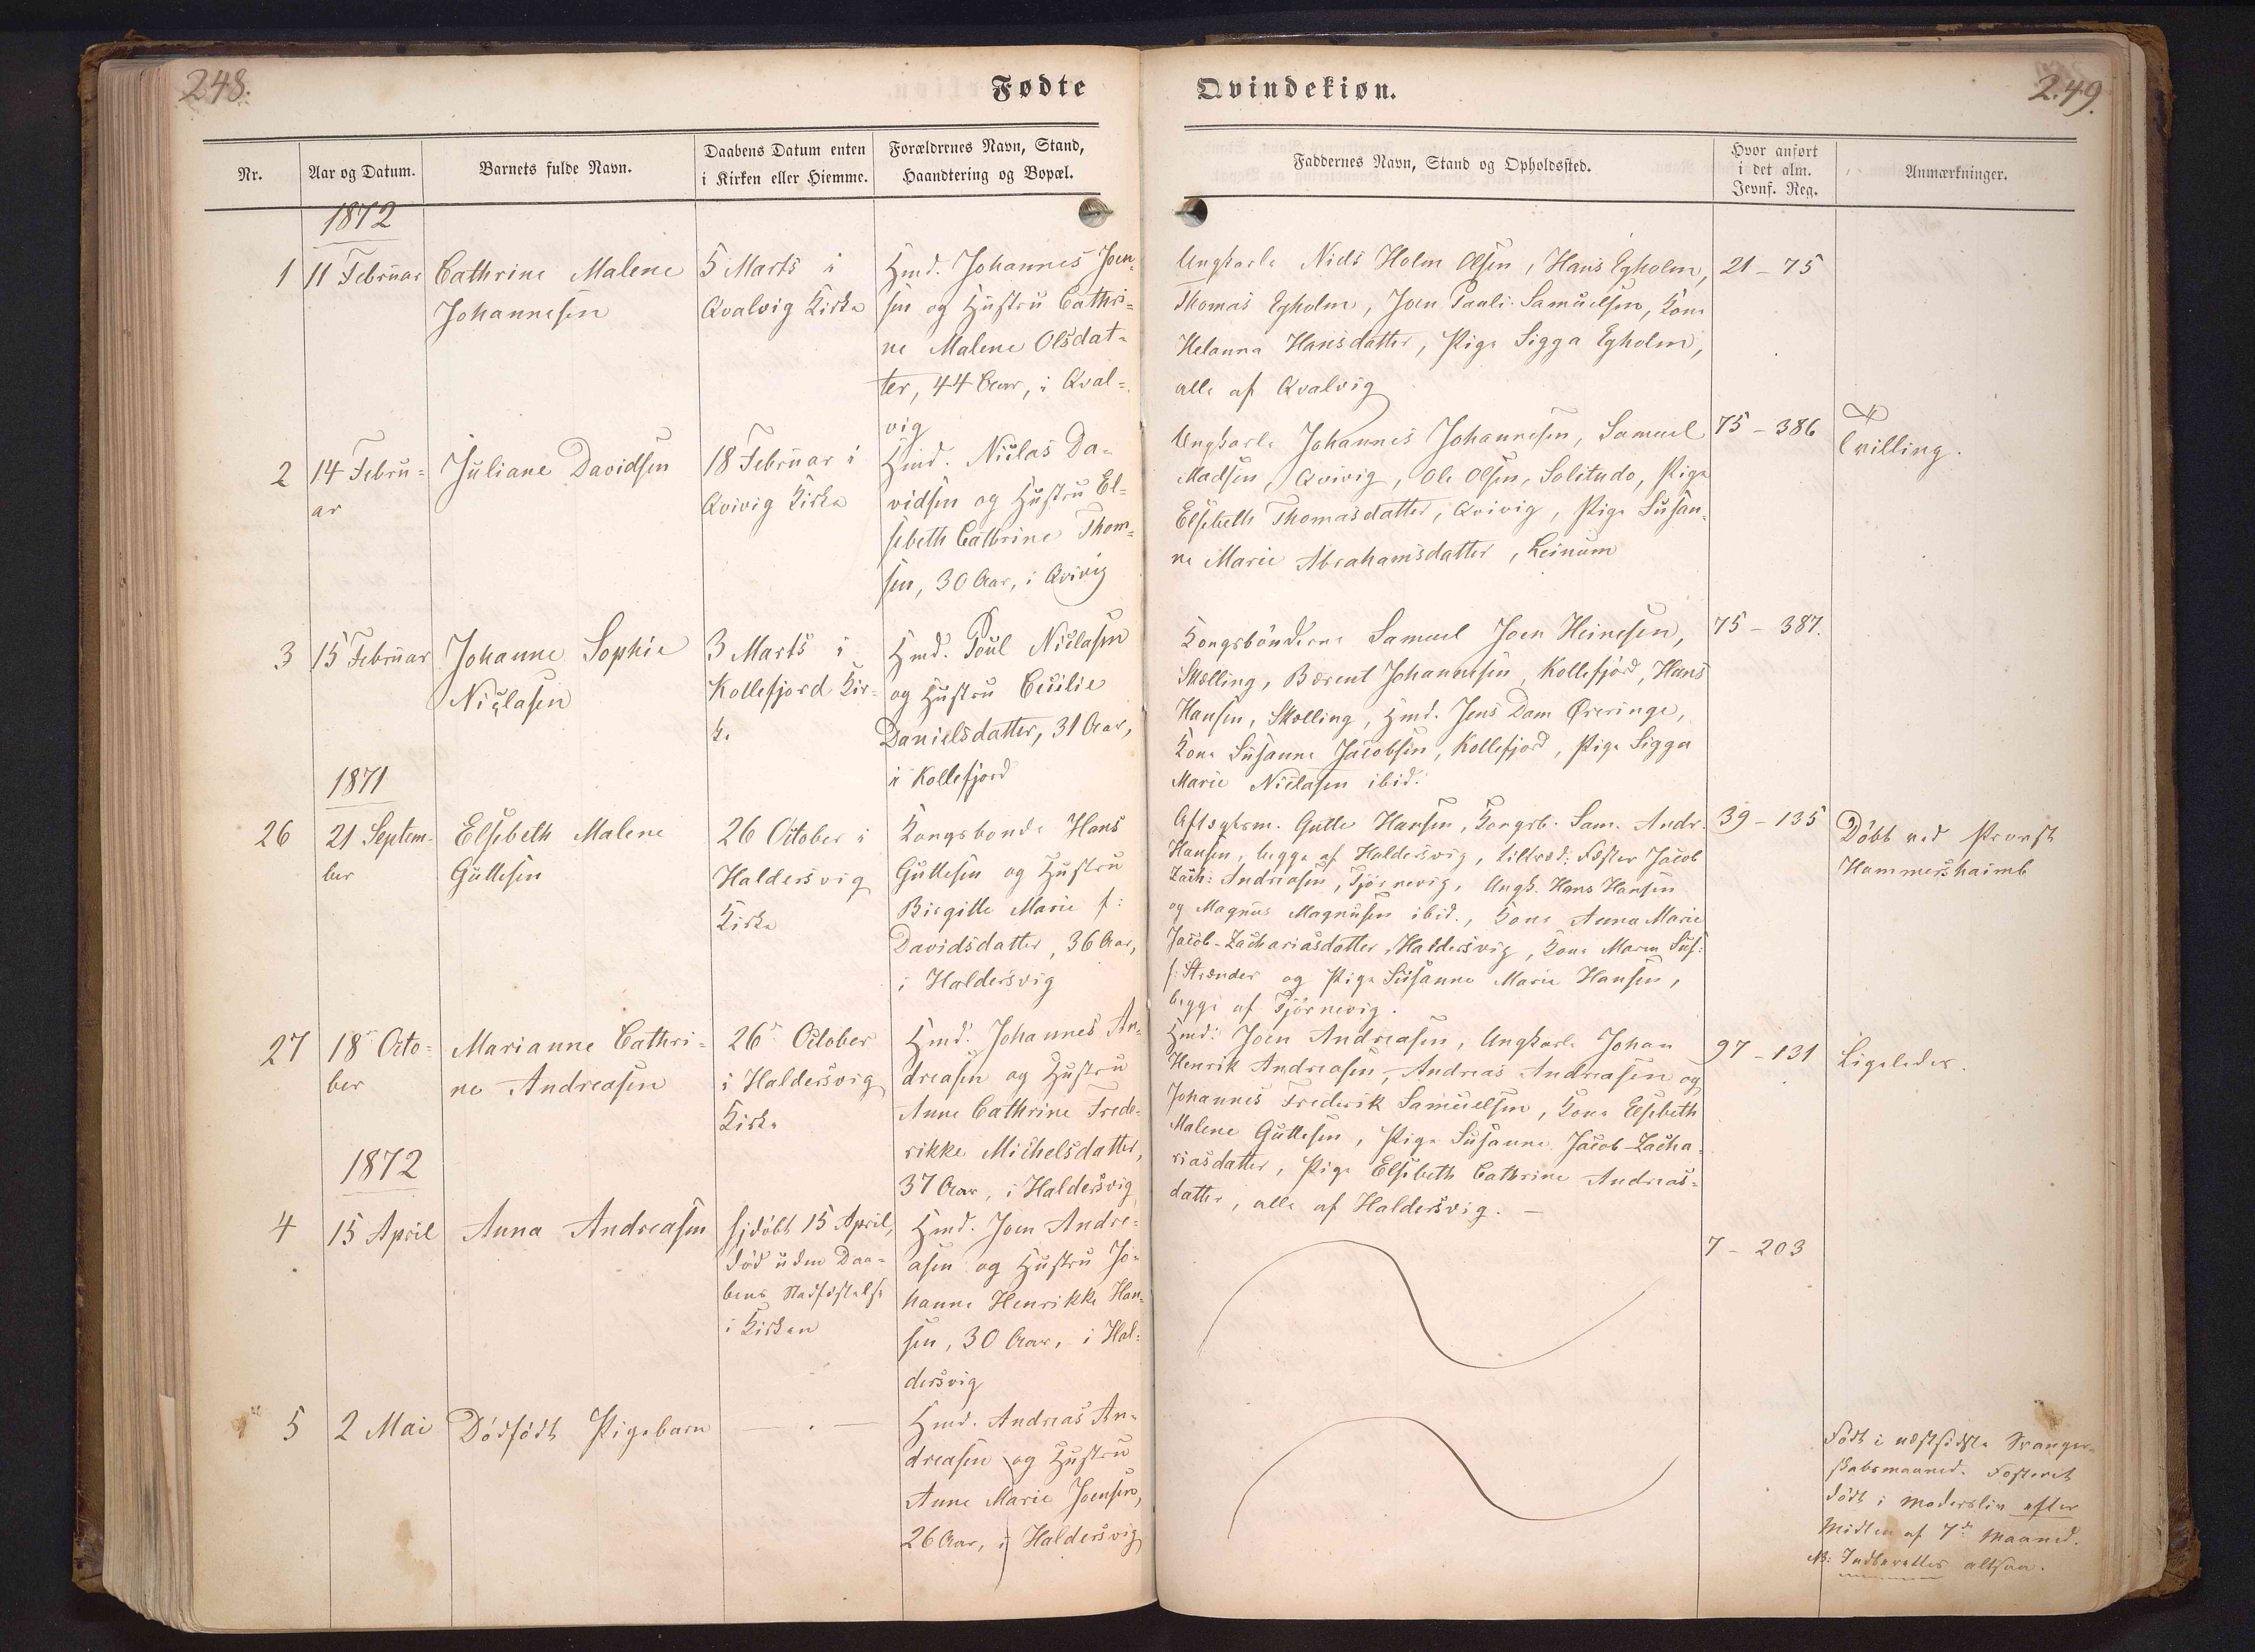 248.
Fødte
Nr.
Aar og Datum.
Barnets fulde Navn.
Daabens Datum enten
i Kirken eller Hiemme.
Forældrenes Navn, Stand,
Haandtering og Bopæl.
1872
1
11 Februar
Cathrine Malene
Johannesen
5 Marts i
Qvalvig Kirke
Hmd. Johannes Joen-
sen og Hustru Cathri-
ne Malene Olsdat-
ter, 44 Aar, i Qval-
vig
2
14 Febru-
ar
Juliane Davidsen
18 Februar i
Qvivig Kirke
Hmd. Niclas Da-
vidsen og Hustru El-
sebeth Cathrine Thom-
sen, 30 Aar, i Qvivig
3
15 Februar
Johanne Sophie
Niclasen
3 Marts i
Kollefjord Kir-
ke
Hmd. Poul Niclasen
og Hustru Cecilie
Danielsdatter, 31 Aar,
i Kollefjord
1871
26
21 Septem-
ber
Elsebeth Malene
Guttesen
26 October i
Haldersvig
Kirke
Kongsbonde Hans
Guttesen og Hustru
Birgitte Marie f:
Davidsdatter, 36 Aar,
i Haldersvig
27
18 Octo-
ber
Marianne Cathri-
ne Andreasen
26 October
i Haldersvig
Kirke
Hmd. Johannes An-
dreasen og Hustru
Anne Cathrine Frede-
rikke Michelsdatter,
37 Aar, i Haldersvig
1872
4
15 April
Anna Andreasen
hjdøbt 15 April,
død uden Daa-
bens Stadfæstelse
i Kirken
Hmd. Joen Andre-
asen og Hustru Jo-
hanne Henrikke Han-
sen, 30 Aar, i Hal-
dersvig
5
2 Mai
Dødfødt Pigebarn
— . —
Hmd. Andreas An-
dreasen og Hustru
Anne Marie Joensen,
26 Aar, i Haldersvig
Qvindekiøn.
249.
Faddernes Navn, Stand og Opholdssted.
Hvor anført
i det alm.
Jevnf. Reg.
Anmærkninger.
Ungkarle Niels Holm Olsen, Hans Egholm,
Thomas Egholm, Joen Pauli Samuelsen, Kone
Helanna Hansdatter, Pige Sigga Egholm,
alle af Qvalvig
21 - 75
Ungkarle Johannes Johannesen, Samuel
Madsen, Qvivig, Ole Olsen, Solitudo, Pige
Elsebeth Thomasdatter, Qvivig, Pige Susan-
ne Marie Abrahamsdatter, Leinum
75 - 386
Tvilling.
Kongsbønderne Samuel Joen Heinesen,
Skælling, Bærent Johannesen, Kollefjord, Hans
Hansen, Skælling, Hmd. Jens Dam Øreringe,
Kone Susanne Jacobsen, Kollefjord, Pige Sigga
Marie Niclasen ibid.
75 - 387.
Aftægtsm. Gutte Hansen, Kongsb. Sam. Andr.
Hansen, begge af Haldersvig, tiltræd: Fæster Jacob
Zach: Andreasen, Tjørnevig, Ungk. Hans Hansen
og Magnus Magnusen ibid., Kone Anna Marie
Jacob-Zachariasdatter, Haldersvig, Kone Maren Sus:
f: Strænder og Pige Susanne Marie Hansen,
begge af Tjørnevig.
39 - 135
Døbt ved Provst
Hammershaimb
Hmd: Joen Andreasen, Ungkarle Johan
Henrik Andreasen, Andreas Andreasen og
Johannes Frederik Samuelsen, Kone Elsebeth
Malene Guttesen, Pige Susanne Jacob-Zacha-
riasdatter, Pige Elsebeth Cathrine Andreas-
datter, alle af Haldersvig. —
97 - 131
Ligeledes.
7 - 203
Født i næstsidste Svanger-
skabsmaaned. Fosteret
dødt i Modersliv efter
Midten af 7de Maaned.
NB: Indberettes altsaa.